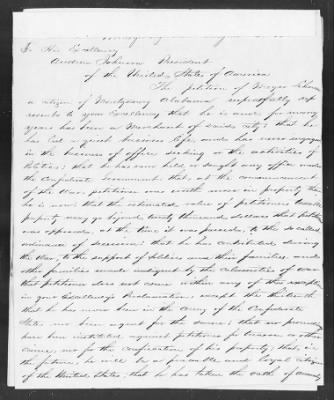 To His Excellency
Andrew Johnson President
of the United States of America
The petition of Meyer Lehman
a citizen of Montgomery Alabama respectfully rep
resents to your Excellency that he is and for many
years has been a Merchant of said city; that he
has led a quiet business life, and has never engaged
in the business of office seeking or the activities of
Politics; that he has never held or sought any office under
the Confederate Government that at the commencement
of the War, petitioner was worth more in property than
he is now: that the estimated value of petitioners taxable
property may go beyond twenty thousand dollars that petitioner
was opposed, at the time it was passed, to the so called
ordinance of secession; that he has contributed, during
the War, to the support of soldiers and their families and
other families made indigent by the calamities of war
that petitioner does not come within any of the exceptions
in your Excellency's Proclamation, except the thirteenth
that he has never been in the Army of the Confederate
States nor been agent for the same; that no proceedings
have been instituted against petitioner for treason or other
cause, nor for the confiscation of his property; that, in
the future, he will be a peaceable and loyal citizen
of the United States, that he has taken the oath of amnesty